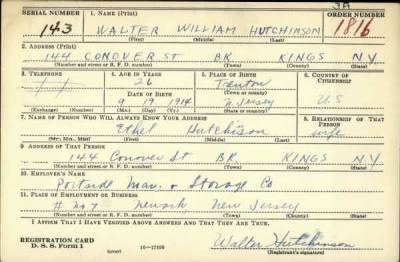 3A
SERIAL NUMBER 1. NAME (Print) ORDER NUMBER
143 WALTER WILLIAM HUTCHINSON 1816
(First) (Middle) (Last)
2. ADDRESS (Print)
144 CONOVER ST BK KINGS N.Y.
(Number and street or R. F. D. number) (Town) (County) (State)
3. TELEPHONE 4. AGE IN YEARS 5. PLACE OF BIRTH 6. COUNTRY OF CITIZENSHIP
26 Trenton
DATE OF BIRTH (Town or county)
9 19 1914 N. Jersey U S
(Exchange) (Number) (Mo.) (Day) (Yr.) (State or country)
7. NAME OF PERSON WHO WILL ALWAYS KNOW YOUR ADDRESS 8. RELATIONSHIP OF THAT PERSON
Ethel Hutchison wife
(Mr., Mrs., Miss) (First) (Middle) (Last)
9. ADDRESS OF THAT PERSON
144 Conover St BK. KINGS N.Y
(Number and street or R. F. D. number) (Town) (County) (State)
10. EMPLOYER'S NAME
Portside & Storage Co
11. PLACE OF EMPLOYMENT OR BUSINESS
# No 7 Newark New Jersey
(Number and street or R. F. D. number) (Town) (County) (State)
I AFFIRM THAT I HAVE VERIFIED ABOVE ANSWERS AND THAT THEY ARE TRUE.
REGISTRATION CARD
D. S. S. Form 1 (over) 16—17105 Walter Hutchinson
(Registrant's signature)